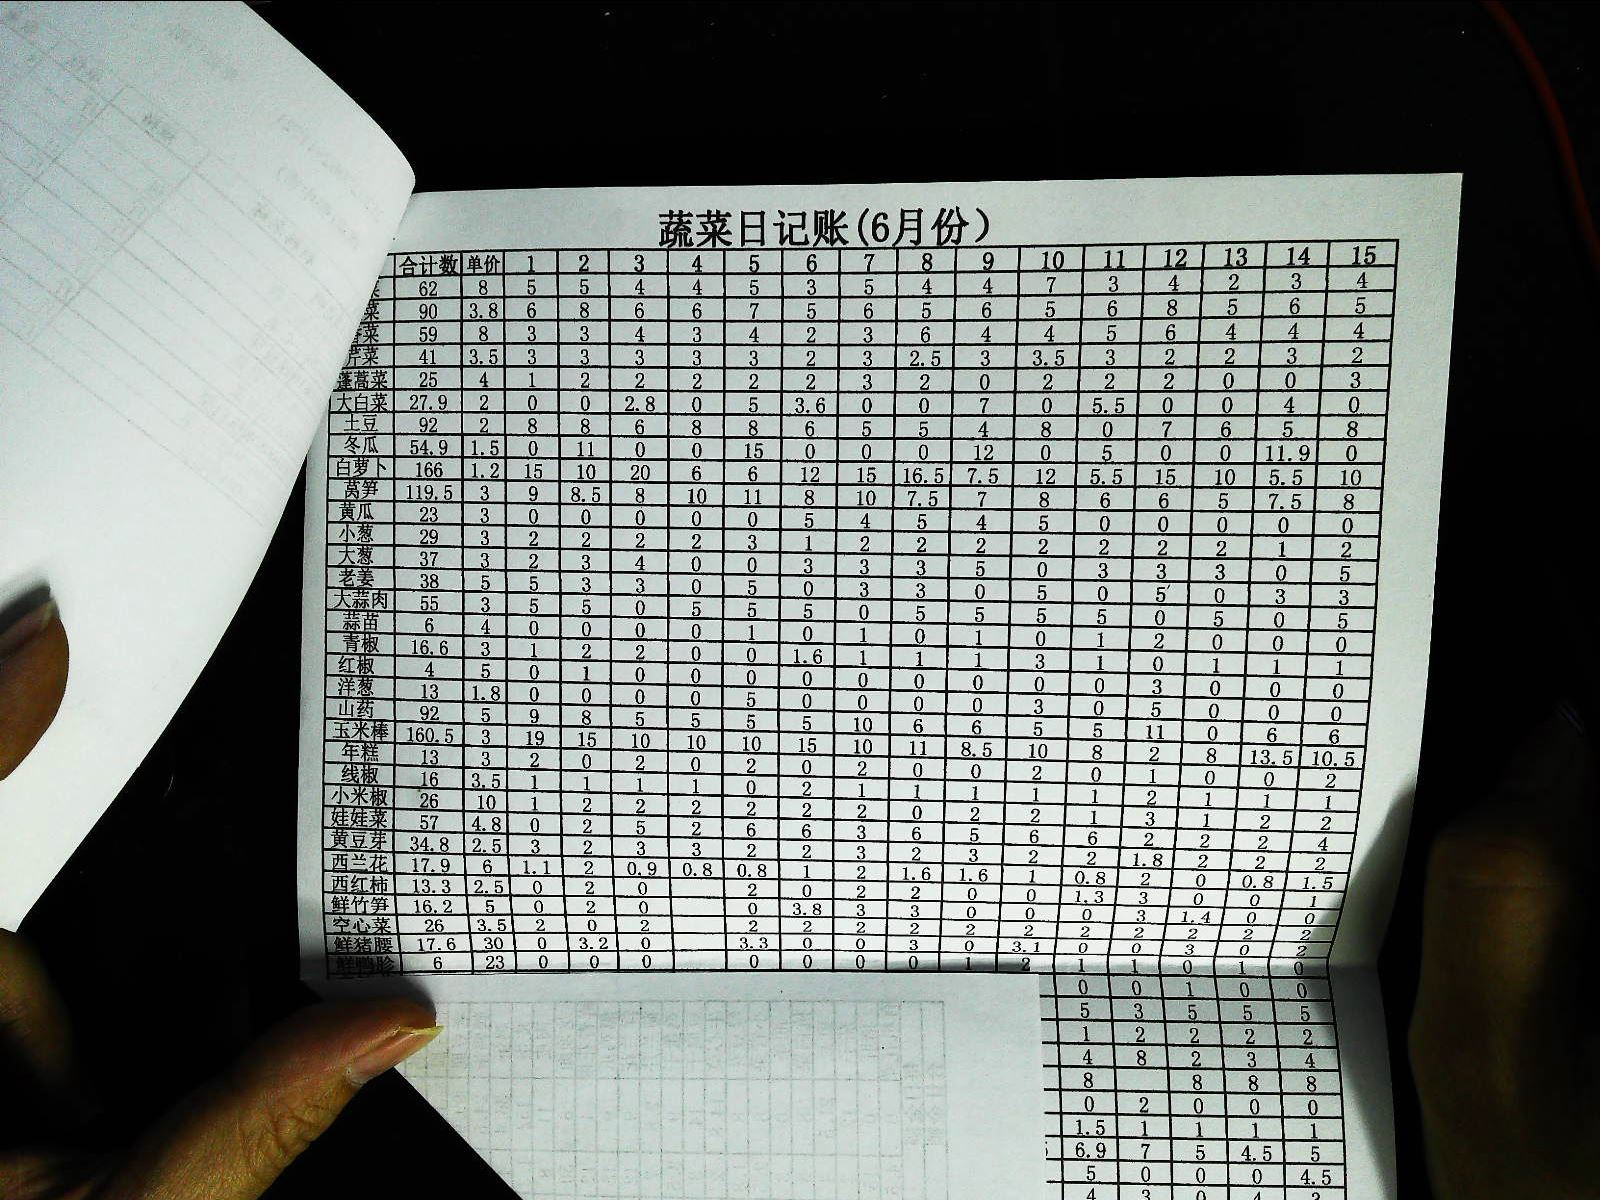 蔬菜日记账(6月份)
合计数 单价 1 2 3 4 5 6 7 8 9 10 11 12 13 14 15
菜 62 8 5 5 4 4 5 3 5 4 4 7 3 4 2 3 4
菜 90 3.8 6 8 6 6 7 5 6 5 6 5 6 8 5 6 5
香菜 59 8 3 3 4 3 4 2 3 6 4 4 5 6 4 4 4
芹菜 41 3.5 3 3 3 3 3 2 3 2.5 3 3.5 3 2 2 3 2
蓬蒿菜 25 4 1 2 2 2 2 2 3 2 0 2 2 2 0 0 3
大白菜 27.9 2 0 0 2.8 0 5 3.6 0 0 7 0 5.5 0 0 4 0
土豆 92 2 8 8 6 8 8 6 5 5 4 8 0 7 6 5 8
冬瓜 54.9 1.5 0 11 0 0 15 0 0 0 12 0 5 0 0 11.9 0
白萝卜 166 1.2 15 10 20 6 6 12 15 16.5 7.5 12 5.5 15 10 5.5 10
莴笋 119.5 3 9 8.5 8 10 11 8 10 7.5 7 8 6 6 5 7.5 8
黄瓜 23 3 0 0 0 0 0 5 4 5 4 5 0 0 0 0 0
小葱 29 3 2 2 2 2 3 1 2 2 2 2 2 2 2 1 2
大葱 37 3 2 3 4 0 0 3 3 3 5 0 3 3 3 0 5
老姜 38 5 5 3 3 0 5 0 3 3 0 5 0 5 0 3 3
大蒜肉 55 3 5 5 0 5 5 5 0 5 5 5 5 0 5 0 5
蒜苗 6 4 0 0 0 0 1 0 1 0 1 0 1 2 0 0 0
青椒 16.6 3 1 2 2 0 0 1.6 1 1 1 3 1 0 1 1 1
红椒 4 5 0 1 0 0 0 0 0 0 0 0 0 3 0 0 0
洋葱 13 1.8 0 0 0 0 5 0 0 0 0 3 0 5 0 0 0
山药 92 5 9 8 5 5 5 5 10 6 6 5 5 11 0 6 6
玉米棒 160.5 3 19 15 10 10 10 15 10 11 8.5 10 8 2 8 13.5 10.5
年糕 13 3 2 0 2 0 2 0 2 0 0 2 0 1 0 0 2
线椒 16 3.5 1 1 1 1 0 2 1 1 1 1 1 2 1 1 1
小米椒 26 10 1 2 2 2 2 2 2 0 2 2 1 3 1 2 2
娃娃菜 57 4.8 0 2 5 2 6 6 3 6 5 6 6 2 2 2 4
黄豆芽 34.8 2.5 3 2 3 3 2 2 3 2 3 2 2 1.8 2 2 2
西兰花 17.9 6 1.1 2 0.9 0.8 0.8 1 2 1.6 1.6 1 0.8 2 0 0.8 1.5
西红柿 13.3 2.5 0 2 0 2 0 2 2 0 0 1.3 3 0 0 1
鲜竹笋 16.2 5 0 2 0 0 3.8 3 3 0 0 0 3 1.4 0 0
空心菜 26 3.5 2 0 2 2 2 2 2 2 2 2 2 2 2 2
鲜猪腰 17.6 30 0 3.2 0 3.3 0 0 3 0 3.1 0 0 3 0 2
鲜鸭胗 6 23 0 0 0 0 0 0 0 1 2 1 1 0 1 0
0 0 1 0 0
5 3 5 5 5
1 2 2 2 2
4 8 2 3 4
8 8 8 8
0 2 0 0 0
1.5 1 1 1 1
6.9 7 5 4.5 5
5 0 0 0 4.5
4 3 0 4